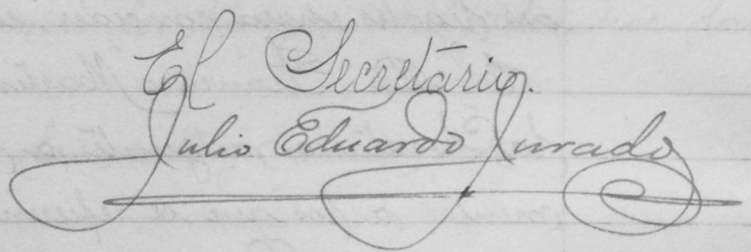 El Secretário.
Julio Eduardo Jurado